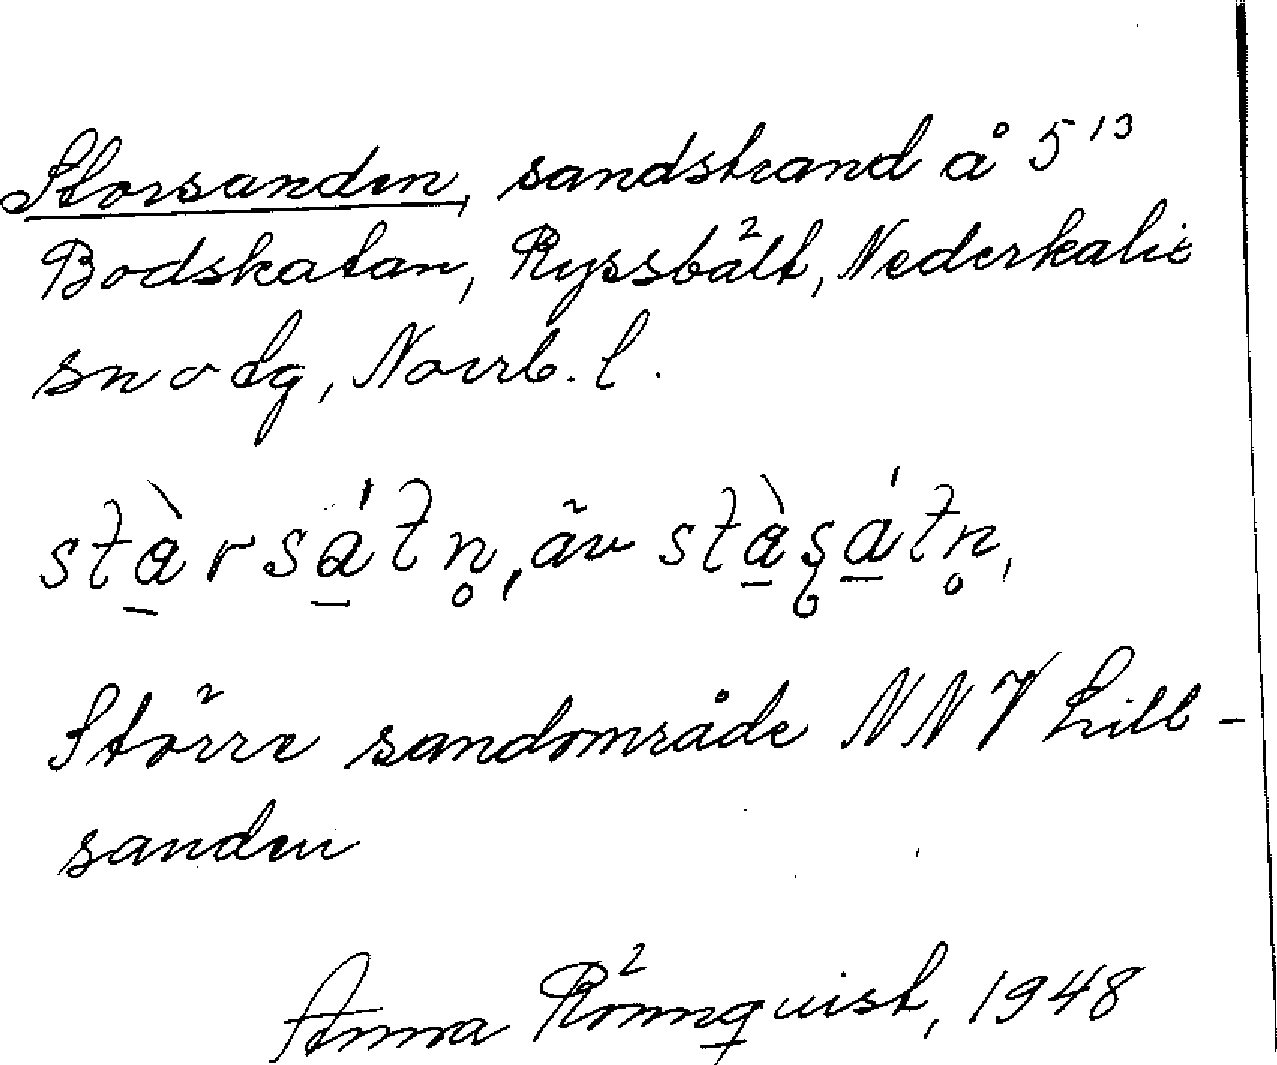 Storsanden, sandstrand å 5 13
Bodskatan, Ryssbält, Nederkalix
sn o dg, Norrb. l.
även
Större sandområde NNV Lill-
sanden
Anna Rönnquist, 1948